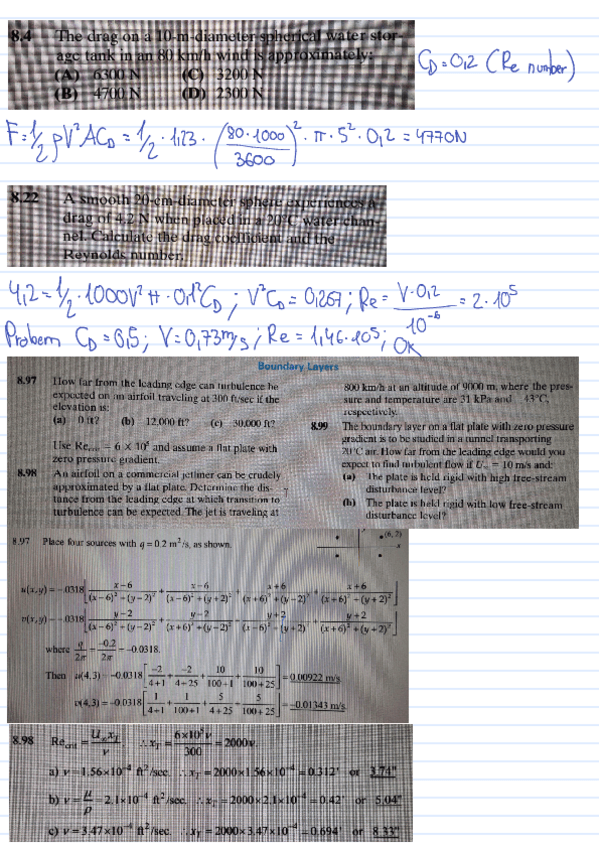 8.4 The drag on a 10-m-diameter spherical water stor-
age tank in an 80 km/h wind is approximately:
(A) 6300 N (C) 3200 N
(B) 4700 N (D) 2300 N
C_D = 0,2 (Re number)
F = 1/2 ρV²AC_D = 1/2 · 1,23 · (80·1000/3600)² · π · 5² · 0,2 = 4770N
8.22 A smooth 20-cm-diameter sphere experiences a
drag of 4.2 N when placed in a 20°C water chan-
nel. Calculate the drag coefficient and the
Reynolds number.
4,2 = 1/2 · 1000V² π · 0,1² C_D ; V²C_D = 0,267 ; Re = V·0,2/10⁻⁶ = 2·10⁵
Probem C_D = 0,5 ; V = 0,73m/s ; Re = 1,46·10⁵ ; OK
Boundary Layers
8.97 How far from the leading edge can turbulence be
expected on an airfoil traveling at 300 ft/sec if the
elevation is:
(a) 0 ft? (b) 12,000 ft? (c) 30,000 ft?
Use Re = 6 × 10⁵ and assume a flat plate with
zero pressure gradient.
8.98 An airfoil on a commercial jetliner can be crudely
approximated by a flat plate. Determine the dis-
tance from the leading edge at which transition to
turbulence can be expected. The jet is traveling at
800 km/h at an altitude of 9000 m, where the pres-
sure and temperature are 31 kPa and −43°C,
respectively.
8.99 The boundary layer on a flat plate with zero pressure
gradient is to be studied in a tunnel transporting
20°C air. How far from the leading edge would you
expect to find turbulent flow if U∞ = 10 m/s and:
(a) The plate is held rigid with high free-stream
disturbance level?
(b) The plate is held rigid with low free-stream
disturbance level?
8.97 Place four sources with q = 0.2 m²/s, as shown.
(6, 2)
x
u(x,y) = −.0318[(x−6)/((x−6)²+(y−2)²) + (x−6)/((x−6)²+(y+2)²) + (x+6)/((x+6)²+(y−2)²) + (x+6)/((x+6)²+(y+2)²)]
v(x,y) = −.0318[(y−2)/((x−6)²+(y−2)²) + (y−2)/((x+6)²+(y−2)²) + (y+2)/((x−6)²+(y+2)²) + (y+2)/((x+6)²+(y+2)²)]
where q/2π = −0.2/2π = −0.0318.
Then u(4,3) = −0.0318[−2/(4+1) + −2/(4+25) + 10/(100+1) + 10/(100+25)] = 0.00922 m/s
v(4,3) = −0.0318[1/(4+1) + 1/(100+1) + 5/(4+25) + 5/(100+25)] = −0.01343 m/s
8.98 Re_crit = U∞x_T/ν. ∴ x_T = 6×10⁵ν/300 = 2000ν.
a) ν = 1.56×10⁻⁴ ft²/sec. ∴ x_T = 2000×1.56×10⁻⁴ = 0.312' or 3.74"
b) ν = μ/ρ = 2.1×10⁻⁴ ft²/sec. ∴ x_T = 2000×2.1×10⁻⁴ = 0.42' or 5.04"
c) ν = 3.47×10⁻⁴ ft²/sec. ∴ x_T = 2000×3.47×10⁻⁴ = 0.694' or 8.33"